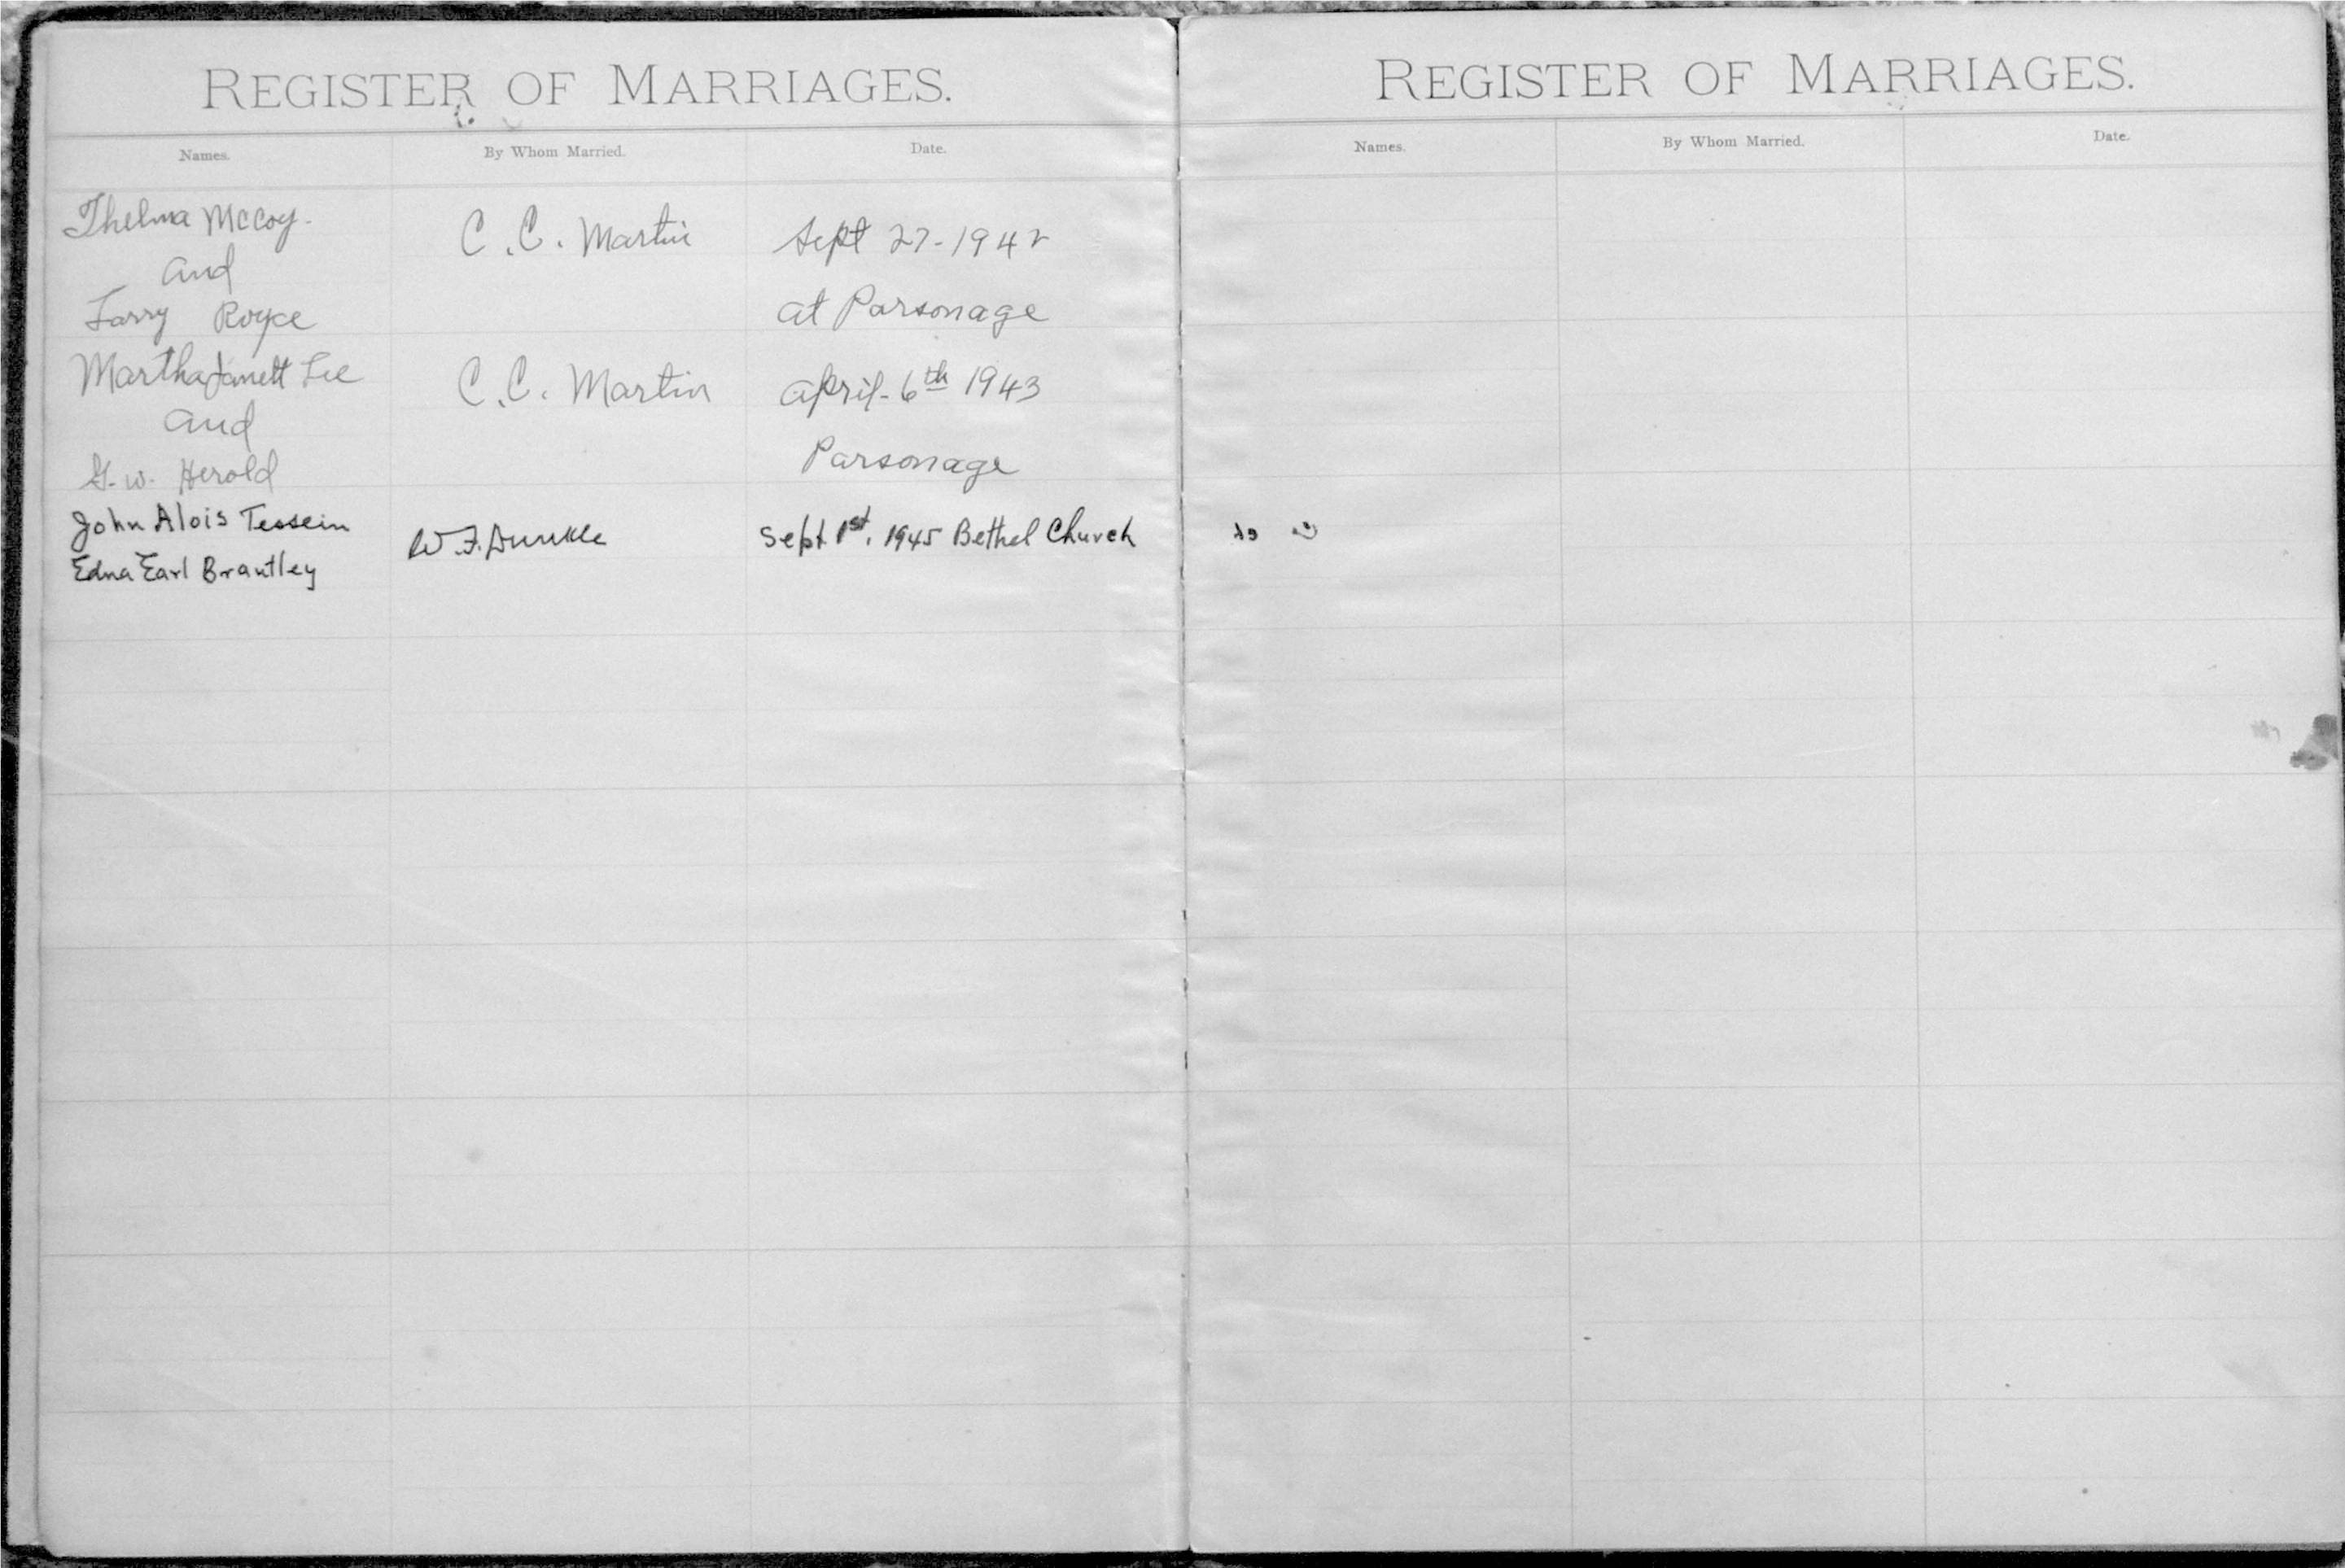 REGISTER OF MARRIAGES.
Names. By Whom Married. Date.
Thelma McCoy. C. C. Martin Sept 27-1942
and
Larry Royce at Parsonage
Martha Janett Lee C. C. Martin April-6th 1943
and
G. W. Herold Parsonage
John Alois Tessein W. F. Dunkle Sept 1st, 1945 Bethel Church
Edna Earl Brantley
REGISTER OF MARRIAGES.
Names. By Whom Married. Date.